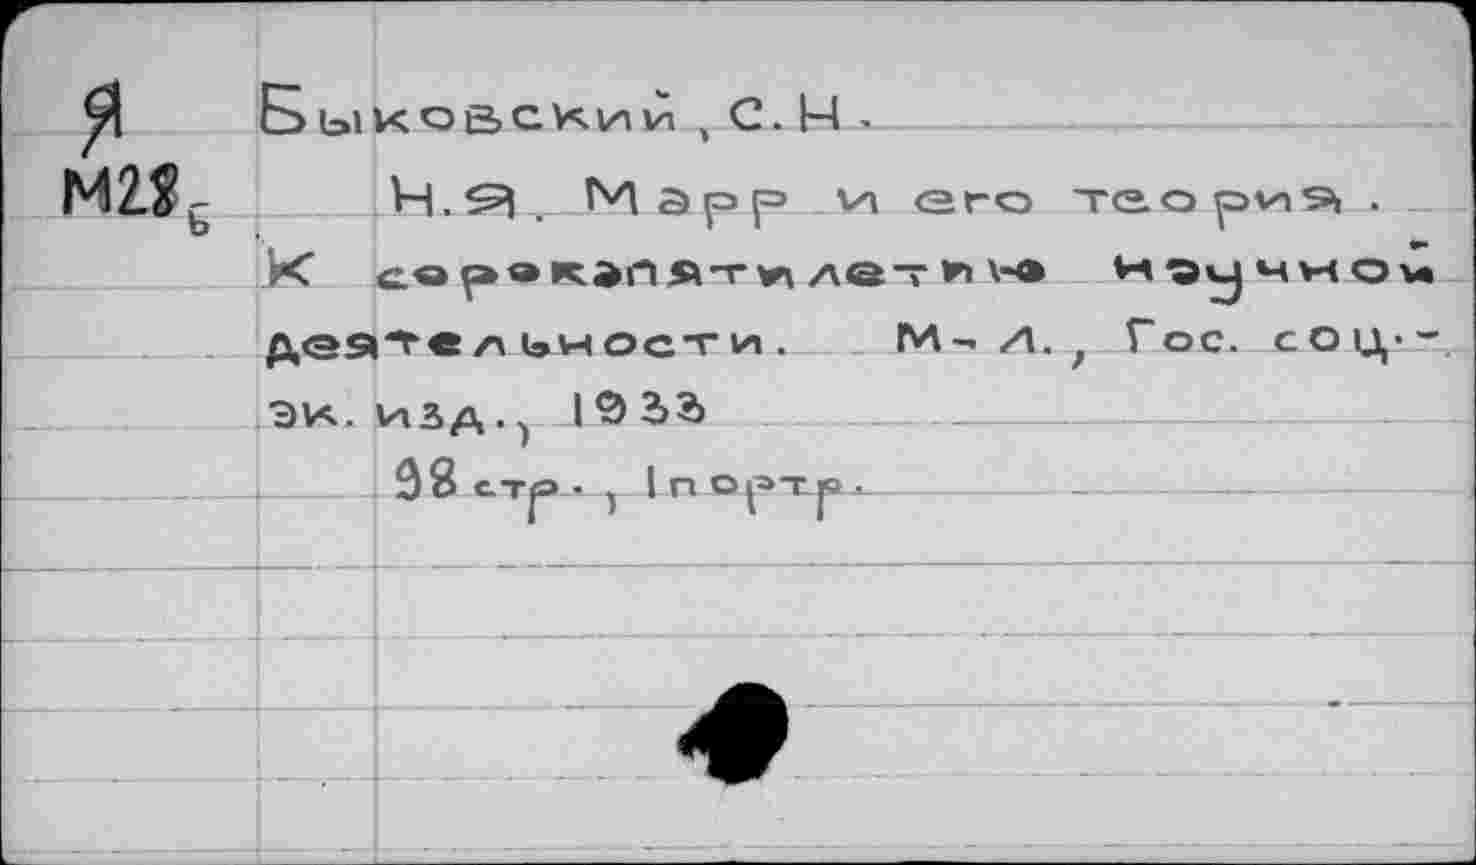 Я Быковский, С.Н.
М28б Н.Я. Марр и его теория.
К сорокапятилетию научной
деятельности. М-Л., Гос. соц.-
эк. изд., 1933
98 стр., 1 портр.